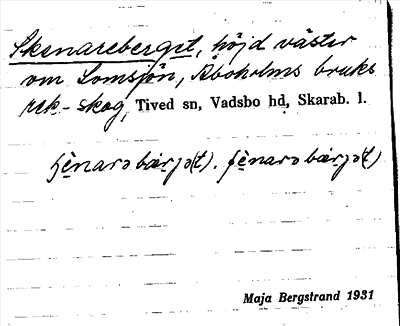 Skenareberget, höjd väster
om Lomsjön, Åboholms bruks
rek-skog, Tived sn, Vadsbo hd, Skarab. l.
ʃènarə bærjə(t). ʃènarə bærjə(t)
Maja Bergstrand 1931